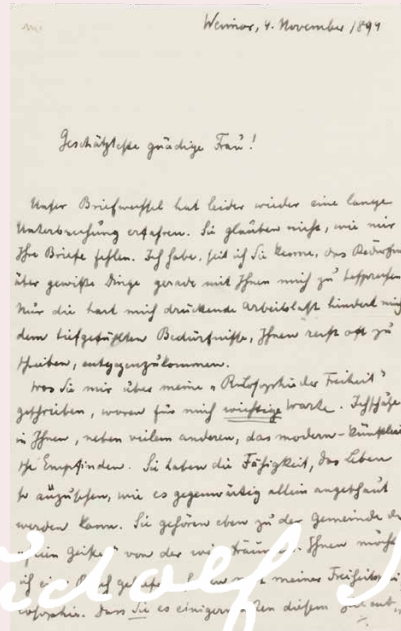 Weimar, 4. November 1894
Geschätzteste gnädige Frau!
Unser Briefwechsel hat leider wieder eine lange
Unterbrechung erfahren. Sie glauben nicht, wie mir
Ihre Briefe fehlen. Ich habe, seit ich Sie kenne, das Bedürfnis
über gewisse Dinge gerade mit Ihnen mich zu besprechen.
Nur die hart mich drückende Arbeitslast hindert mich
dem tiefgefühlten Bedürfnisse, Ihnen recht oft zu
schreiben, entgegenzukommen.
Was Sie mir über meine „Philosophie der Freiheit"
geschrieben, waren für mich wichtige Worte. Ich schätze
in Ihnen, neben vielem anderen, das modern-künstleri
sche Empfinden. Sie haben die Fähigkeit, das Leben
so anzusehen, wie es gegenwärtig allein angeschaut
werden kann. Sie gehören eben zu der Gemeinde der
Geister" von der wir träumen. Ihnen möchte
ich ein Buch meiner Freiheits
Dass Sie es einigermaßen diesem
Rudolf